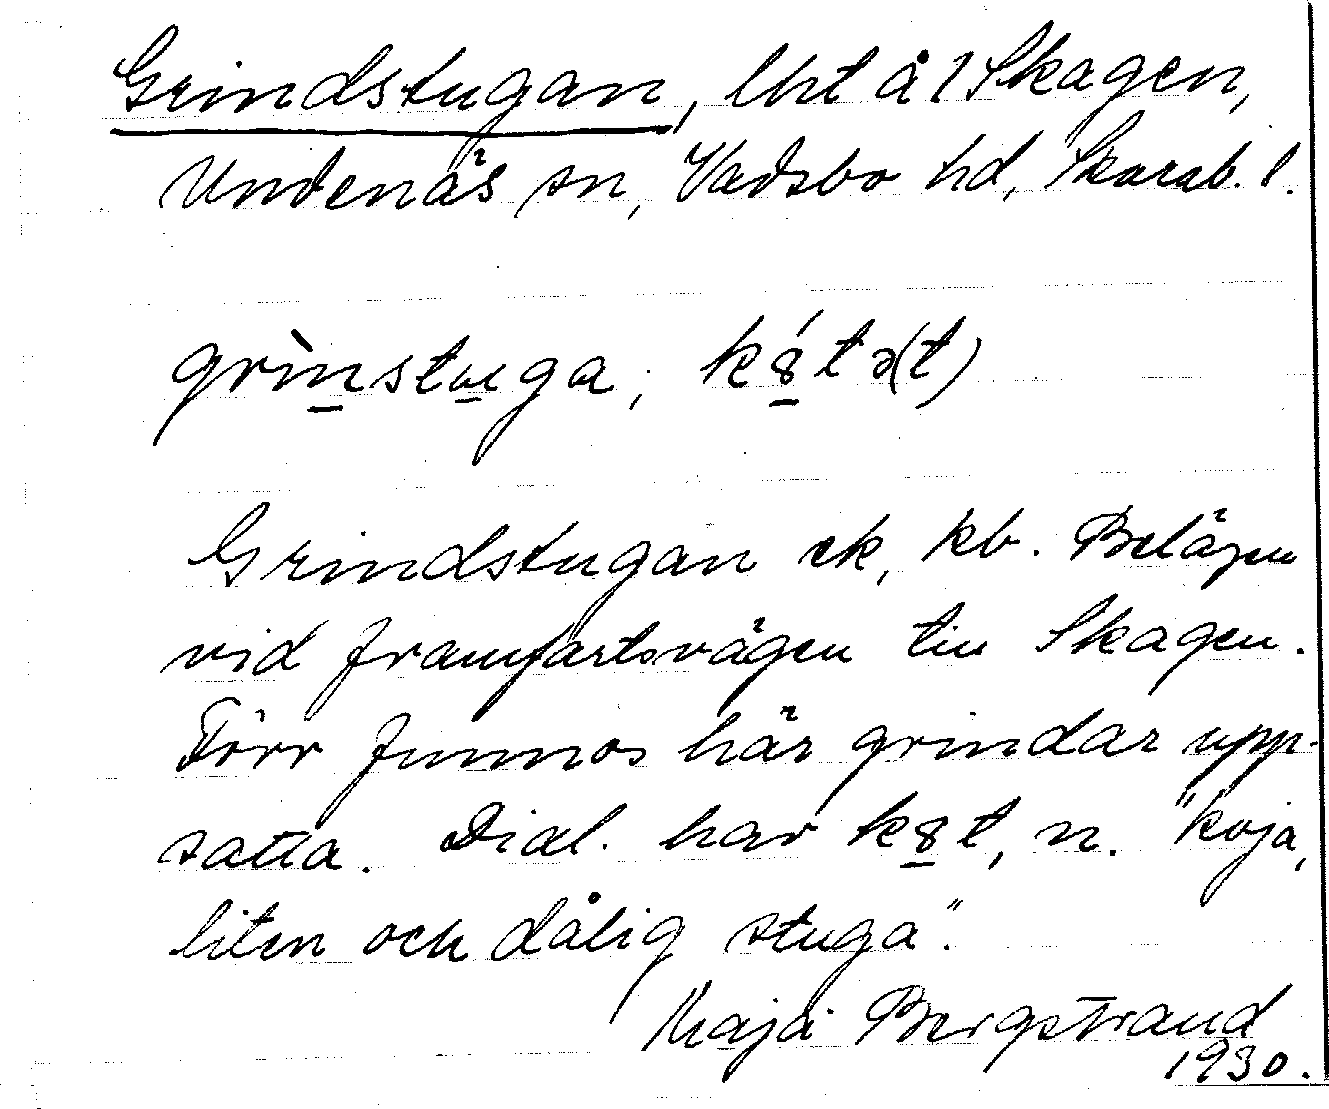 Grindstugan, lht å 1 Skagen,
Undenäs sn, Vadsbo hd, Skarab. l.
grìnstuga; k8́tə(t)
Grindstugan ek, kb. Belägen
vid framfartsvägen till Skagen.
Förr funnos här grindar upp-
satta. Dial. har k8t, n. "koja,
liten och dålig stuga".
Maja Bergstrand
1930.